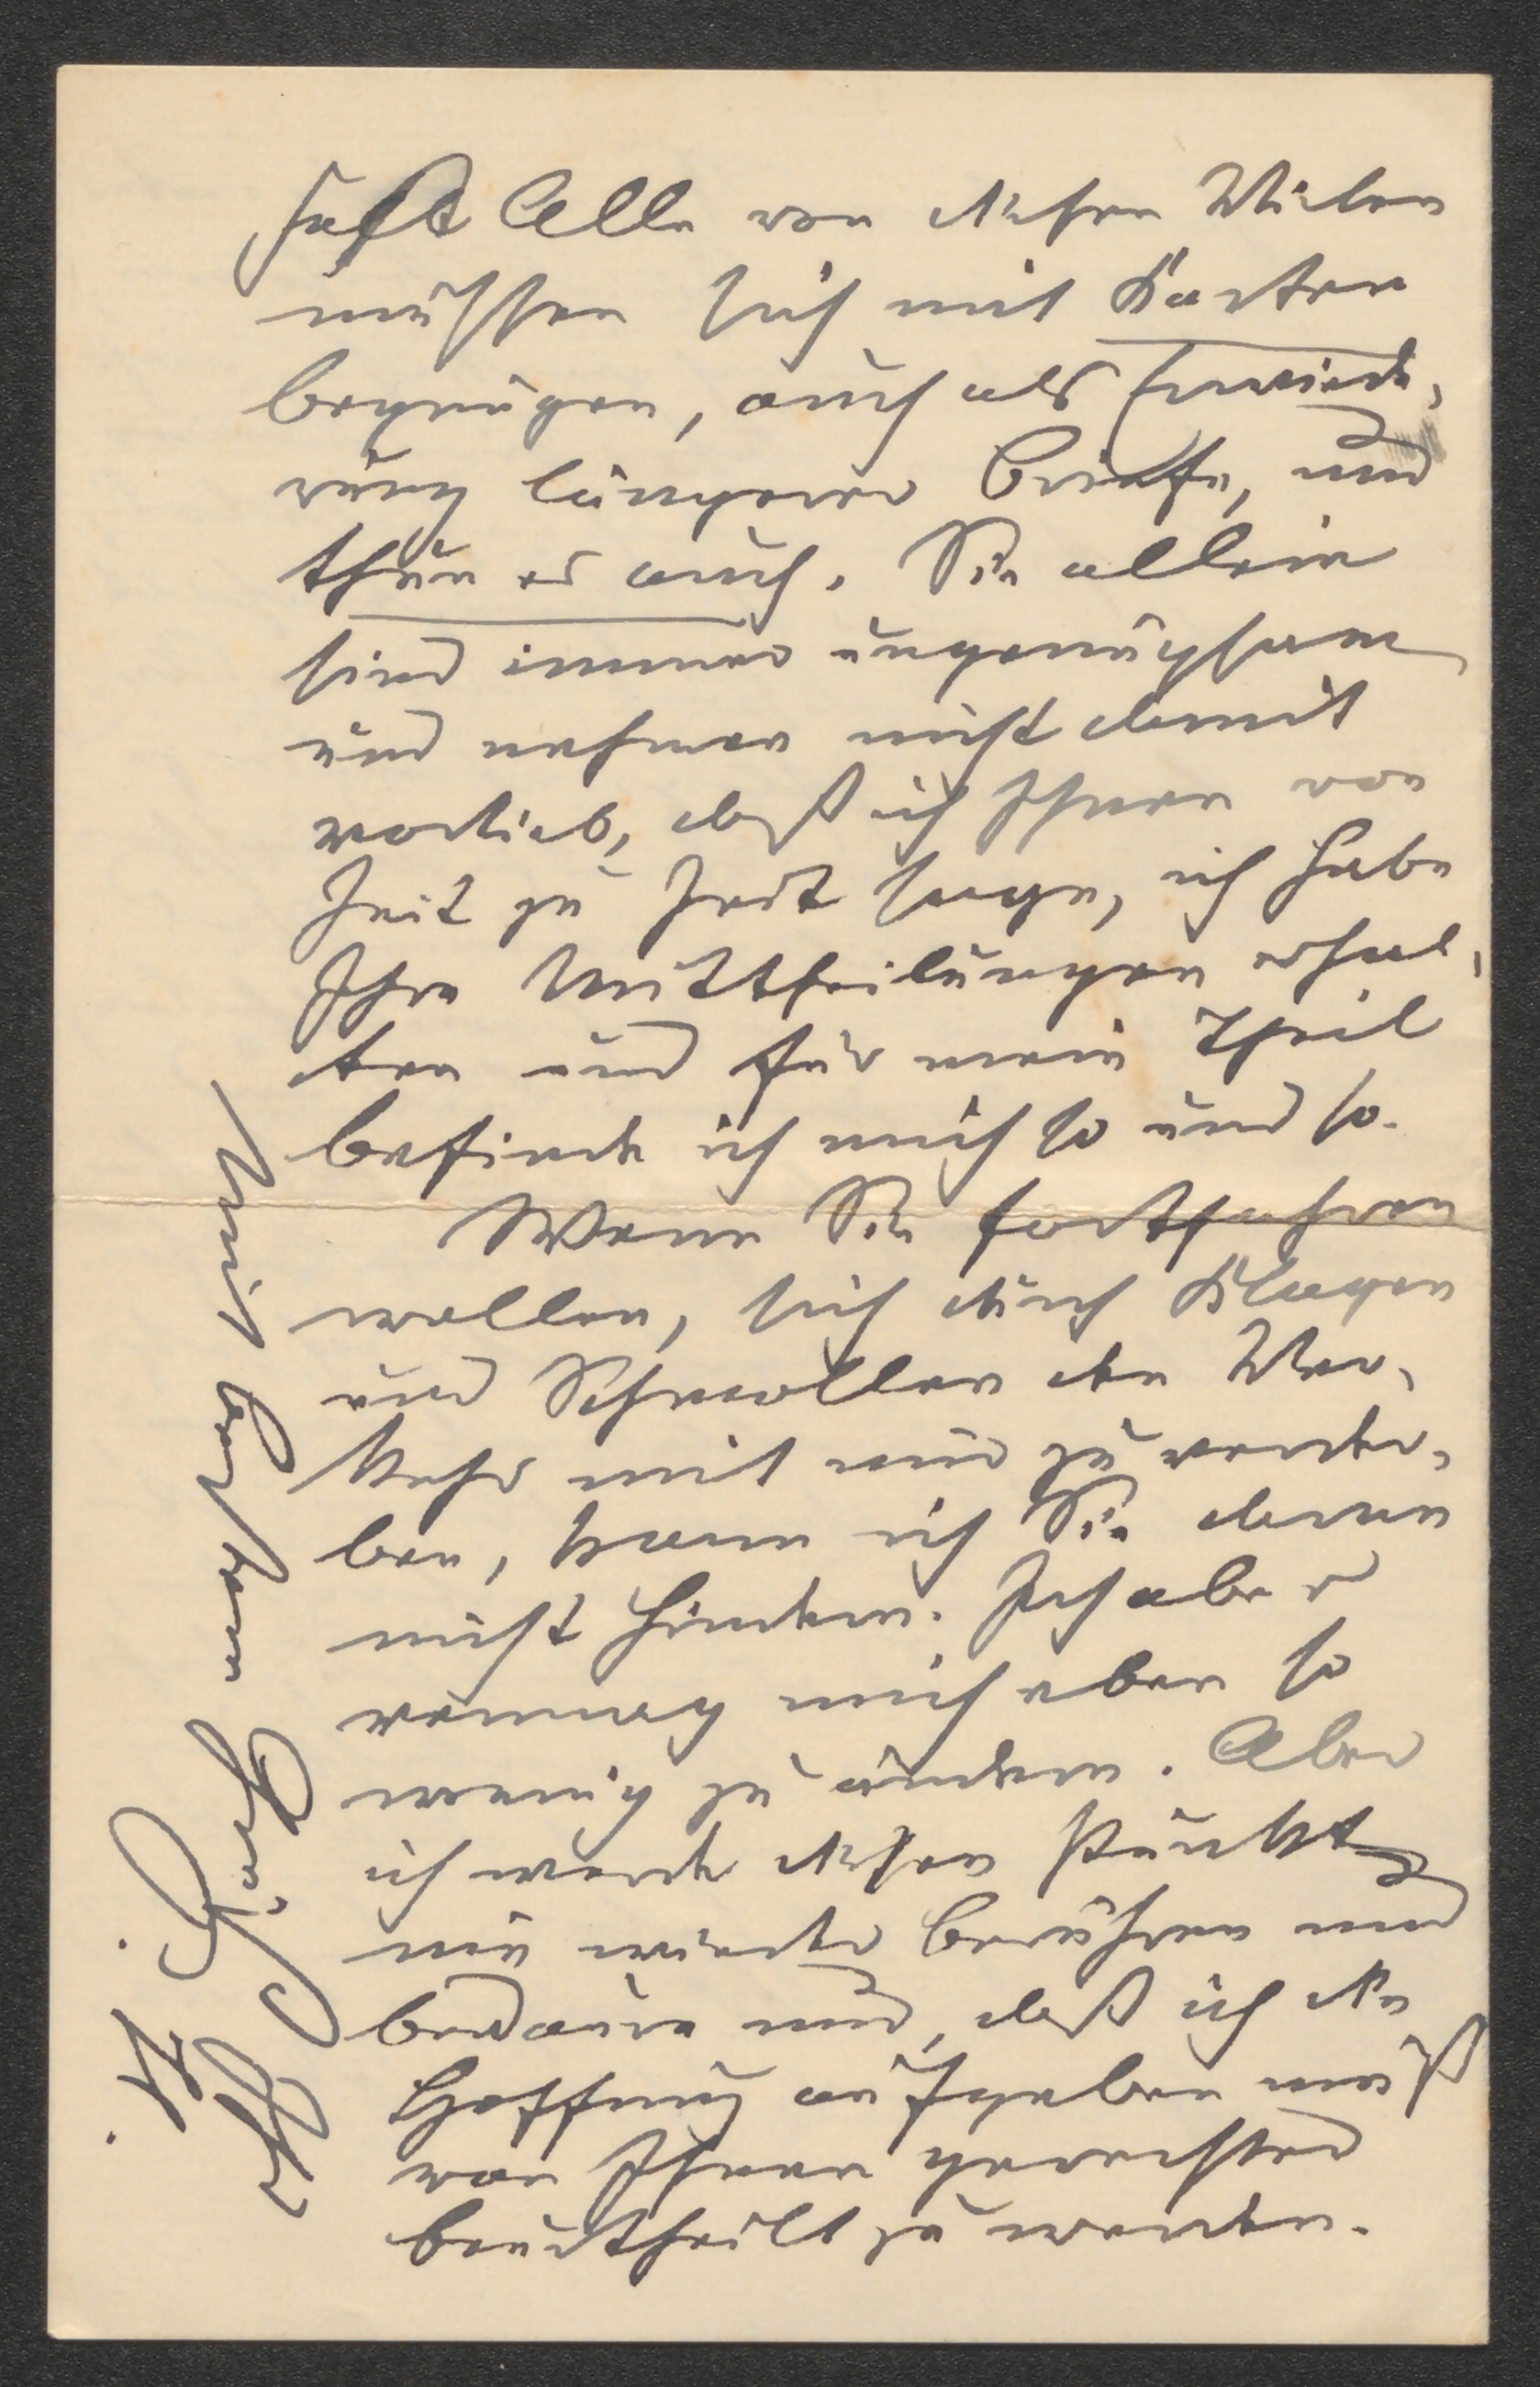 Fast Alle von diesen Vielen
müssen sich mit Karten
begnügen, auch als Erwiede-
rung längerer Briefe, und
thun es auch. Sie allein
sind immer ungenügsam
und nehmen nicht damit
vorlieb, daß ich Ihnen von
Zeit zu Zeit sage, ich habe
Ihre Mittheilungen erhal-
ten und für mein Theil
befinde ich mich so und so.
Wenn Sie fortfahren
wollen, sich durch Klagen
und Schmollen den Ver-
kehr mit mir zu verder-
ben, kann ich Sie daran
nicht hindern. Ich aber
vermag mich eben so
wenig zu ändern. Aber
ich werde diesen Punkt
nie wieder berühren und
bedaure nur, daß ich die
Hoffnung aufgeben muß
von Ihnen gerechter
beurtheilt zu werden.
Mit bestem Gruß
Ihr
P. H.